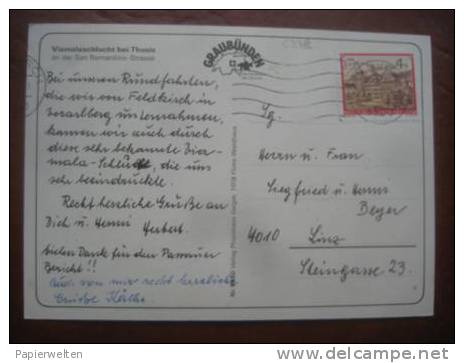 Viamalaschlucht bei Thusis
an der San Bernardino-Strasse
GRAUBÜNDEN
Bei unseren Rundfahrten,
die wir von Feldkirch in
Vorarlberg unternahmen,
kamen wir auch durch
diese sehr bekannte Via-
mala-Schlucht, die uns
sehr beeindruckte.
Recht herzliche Grüße an
Dich u. Henni Herbert.
Vielen Dank für den Passauer
Bericht!!
Auch von mir recht herzliche
Grüße Käthe
Sg.
Herrn u. Frau
Siegfried u. Henni
Beyer
4010 Linz
Steingasse 23.
Papierwelten
http://www.delcampe.net